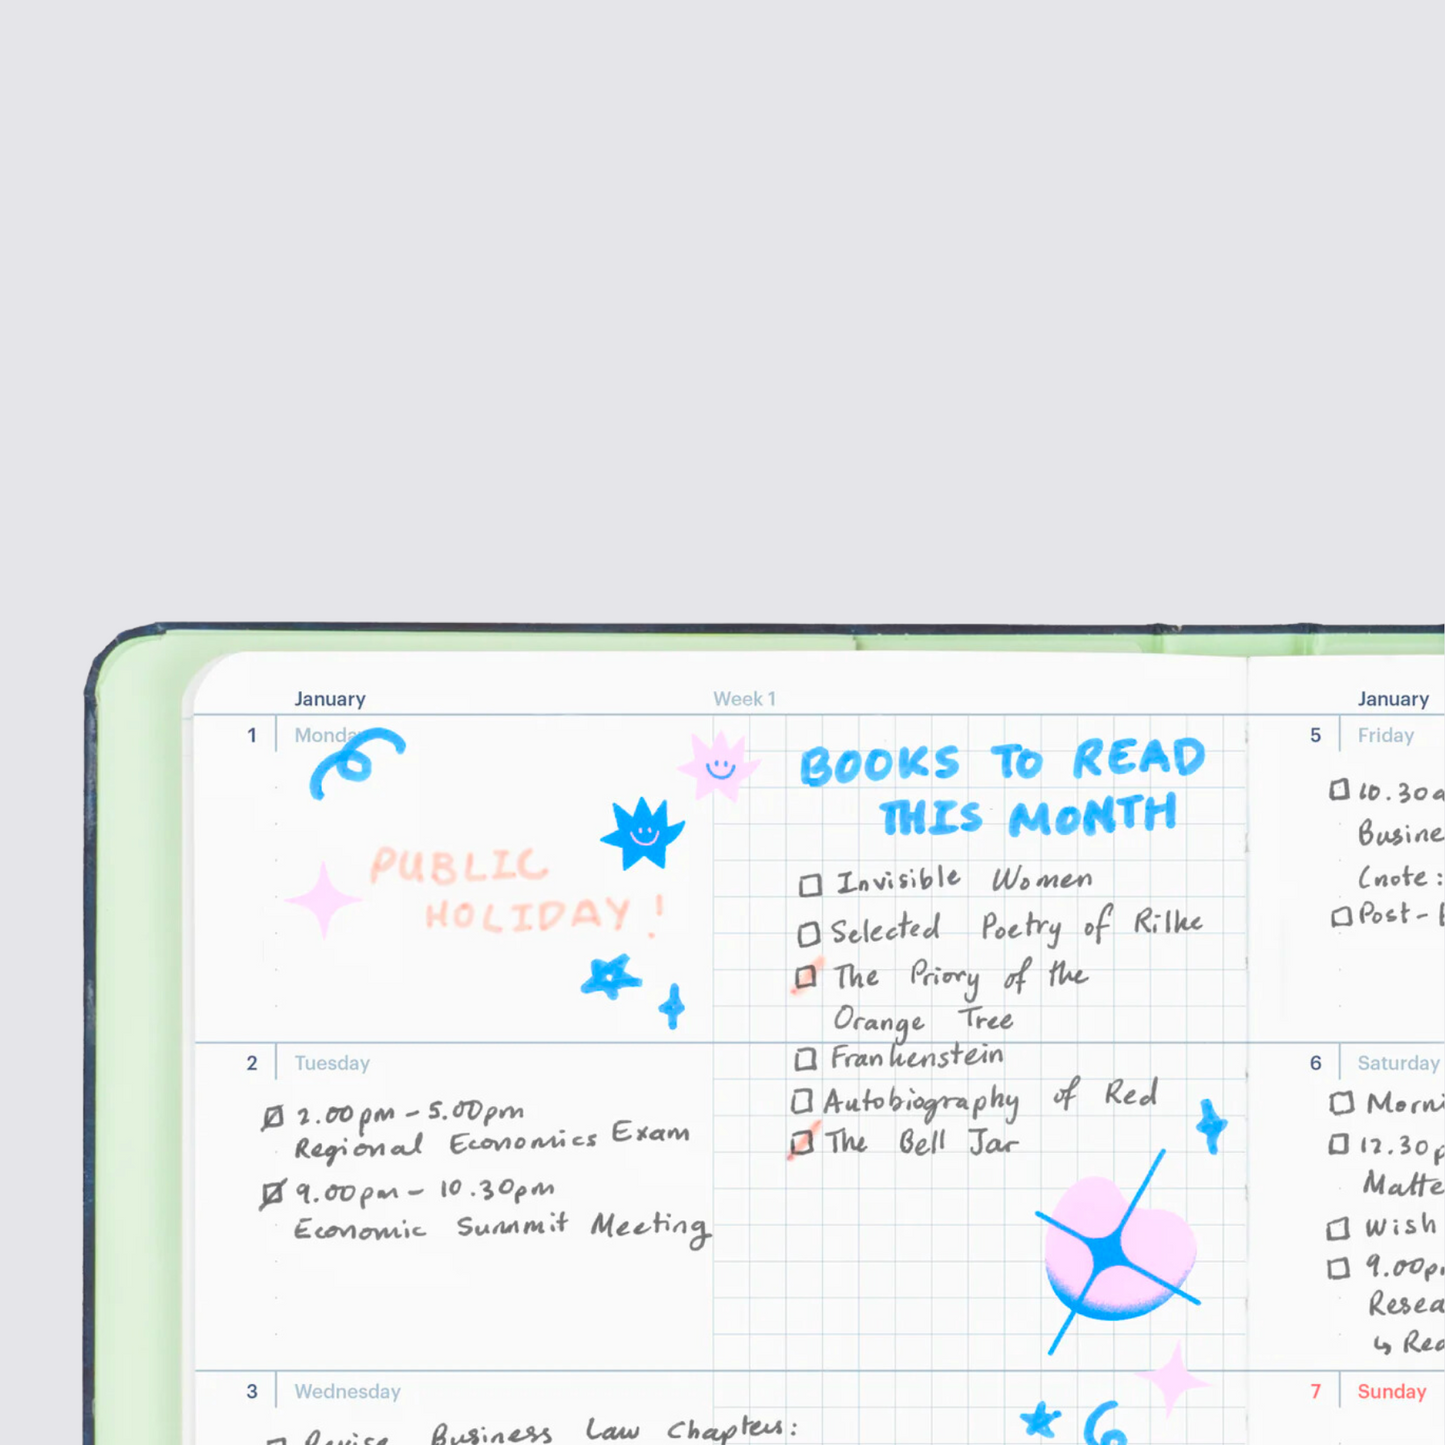 January
Week 1
January
1
Monday
PUBLIC
HOLIDAY!
BOOKS TO READ
THIS MONTH
Invisible Women
Selected Poetry of Rilke
The Priory of the
Orange Tree
Frankenstein
Autobiography of Red
The Bell Jar
2
Tuesday
2.00pm - 5.00pm
Regional Economics Exam
9.00pm - 10.30pm
Economic Summit Meeting
3
Wednesday
Revise Business Law Chapters:
5
Friday
10.30a
Busine
(note:
Post-
6
Saturday
Morni
12.30p
Matte
Wish
9.00p
Resea
↳ Rea
7
Sunday